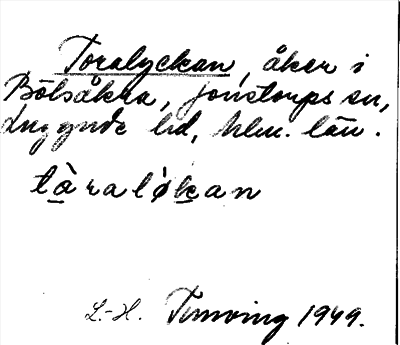 Toralyckan, åker i
Bölsåkra, Jonstorps sn,
Luggude hd, Mlm. län.
tàralókan
L.-H. Tinoring 1949.